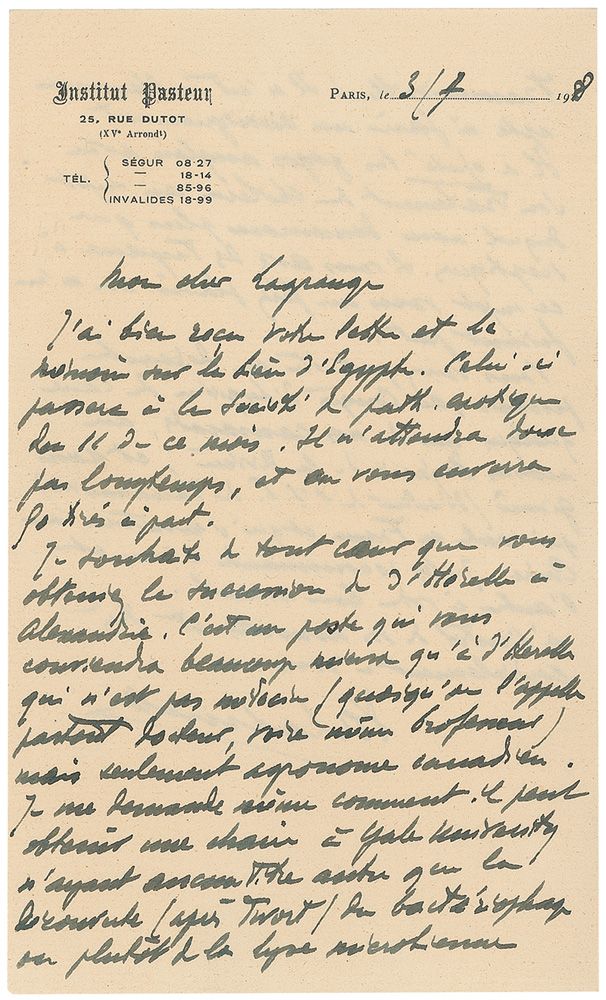 Institut Pasteur
25, RUE DUTOT
(XVᵉ Arrondt)
TÉL. SÉGUR 08-27
— 18-14
— 85-96
INVALIDES 18-99
PARIS, le 3/7 1928
Mon cher Lagrange
J'ai bien reçu votre lettre et le
mémoire sur le d'Egypte. Celui-ci
passera à la Société de path. exotique
du 11 de ce mois. Il n'attendra donc
pas longtemps, et on vous enverra
50 tirés à part.
Je souhaite de tout cœur que vous
obteniez la succession de d'Herelle à
Alexandrie. C'est un poste qui vous
conviendra beaucoup mieux qu'à d'Herelle
qui n'est pas médecin (quoiqu'on l'appelle
partout docteur, voire même Professeur)
mais seulement agronome canadien.
Je me demande même comment il peut
obtenir une chaire à Yale University
n'ayant aucun titre autre que la
découverte (après Twort) du bactériophage
ou plutôt de la lyse microbienne